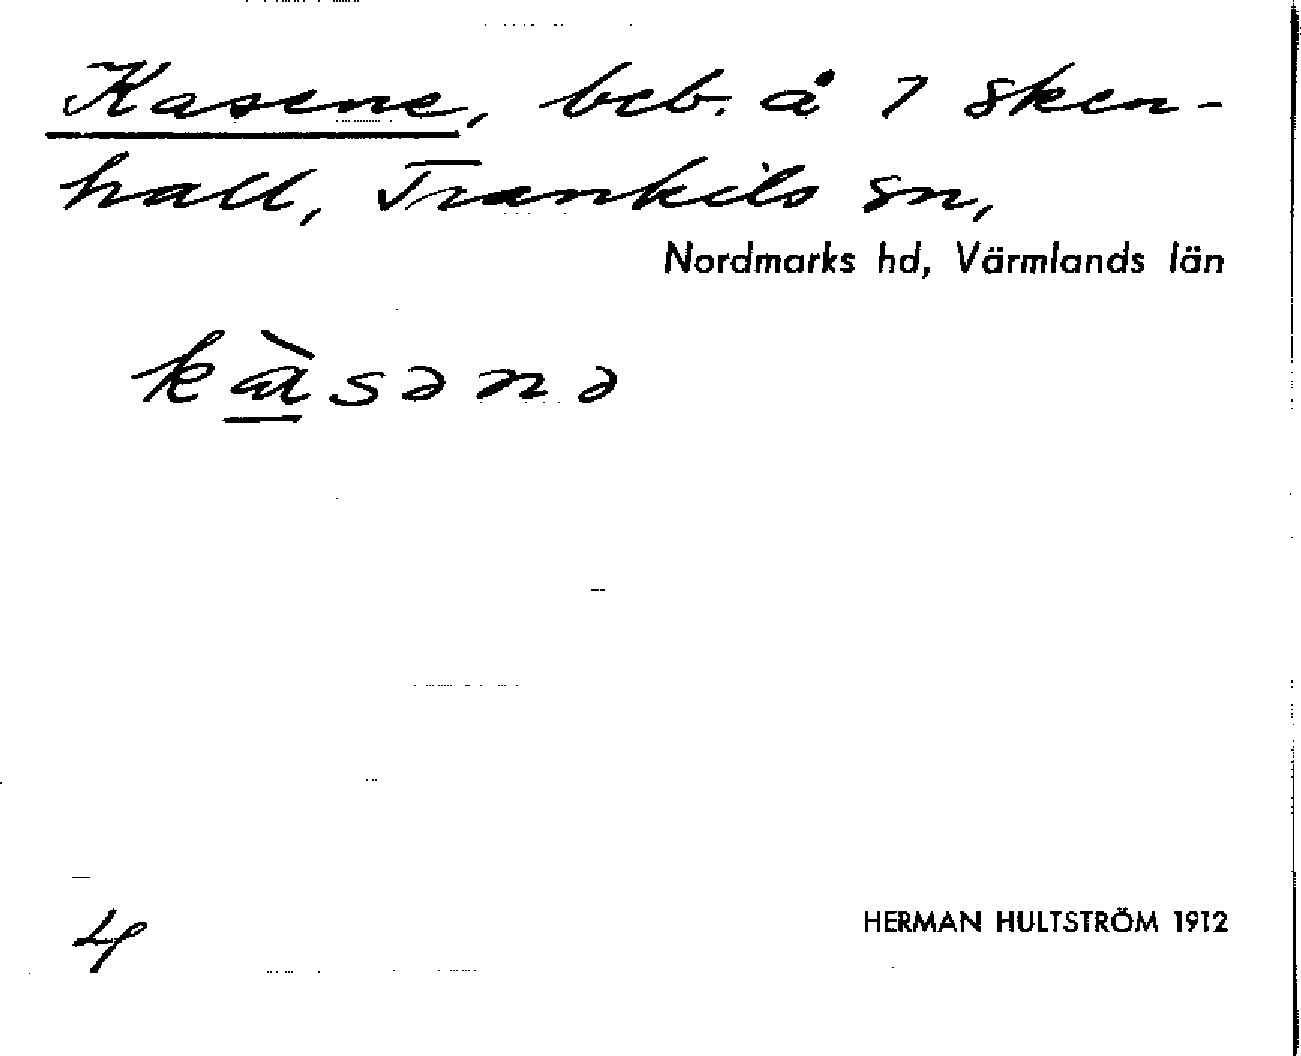 Kasene, beb. å 7 Sken-
hall, Trankils sn,
Nordmarks hd, Värmlands län
kɑ̀sənə
4
HERMAN HULTSTRÖM 1912